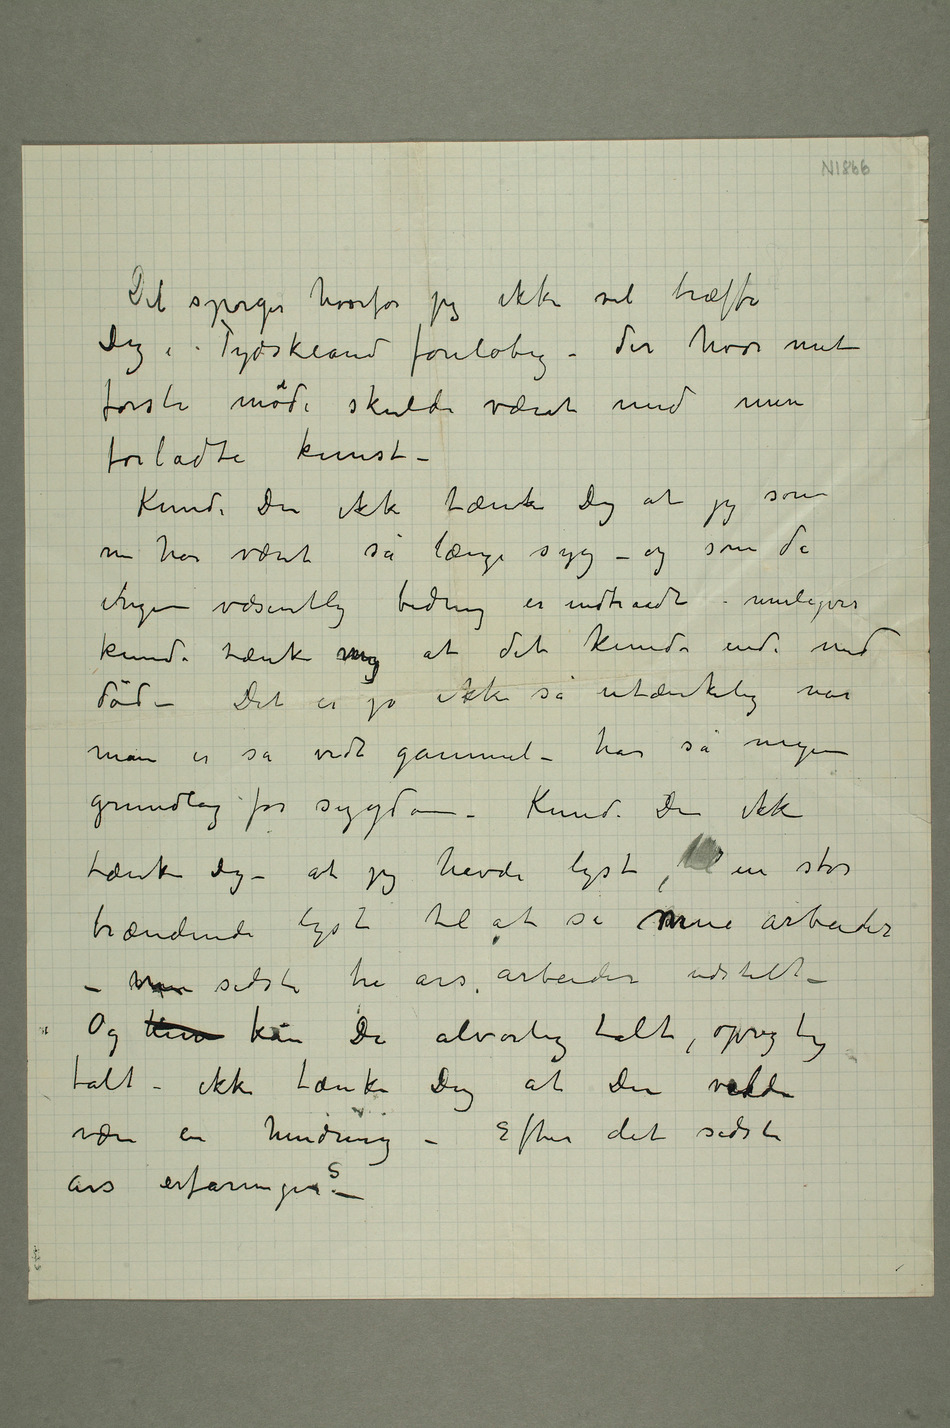 N1866
Det spørger hvorfor jeg ikke vil træffe
Dig i Tydskland foreløbig – der hvor mit
første møde skulde været med min
forladte kunst –
Kunde Du ikke tænke Dig at jeg som
nu har været så længe syg – og som da
ingen væsentlig bedring er indtraadt – muligvis
kunde tænke mig at det kunde ende med
død – Det er jo ikke så utænkelig når
man er så vidt gammel – har så megen
grundlag for sygdom – Kunde Du ikke
tænke Dig – at jeg havde lyst, til en stor
brændende lyst til at se mine arbeider
– mine sidste tre års arbeider udstilt –
Og kan Du alvorlig talt, oprigtig
talt – ikke tænke Dig at Du vilde
være en hindring – Efter det sidste
års erfaringer S –